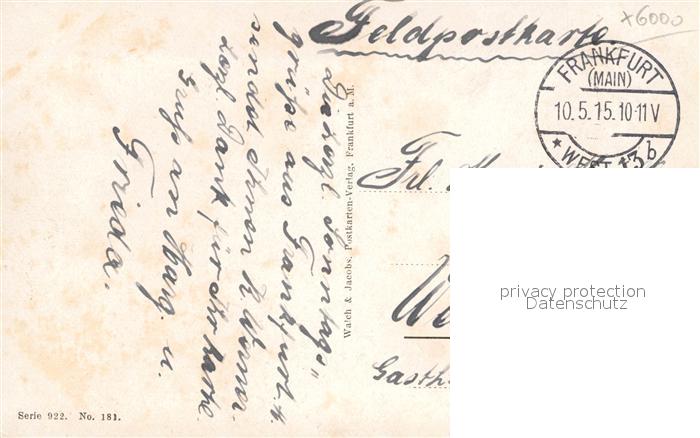 Feldpostkarte
x6000
FRANKFURT
(MAIN)
10.5.15.10-11 V
* WEST 13 b
Frl.
Gasth
Die herzl. Sonntags"
grüße aus Frankfurt a.
sendet Ihnen
Herzl. Dank für Ihre Karte.
Gruß an Marg. u.
Frida.
Walch & Jacobs, Postkarten-Verlag, Frankfurt a. M.
Serie 922. No. 181.
privacy protection
Datenschutz